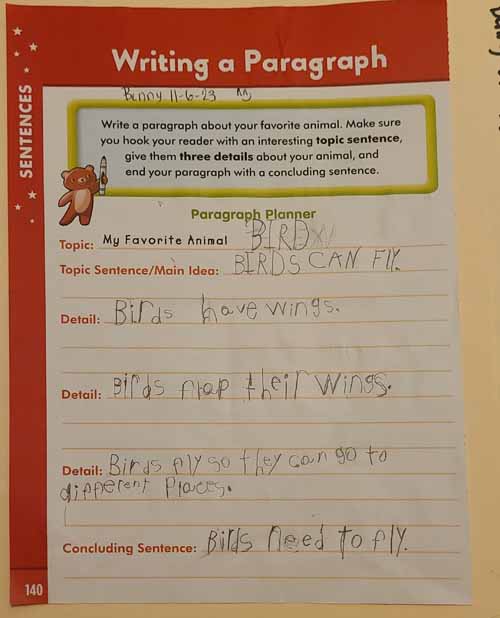 Writing a Paragraph
Benny 11-6-23
SENTENCES
Write a paragraph about your favorite animal. Make sure
you hook your reader with an interesting topic sentence,
give them three details about your animal, and
end your paragraph with a concluding sentence.
Paragraph Planner
Topic: My Favorite Animal BIRD
Topic Sentence/Main Idea: BIRDS CAN FLY.
Detail: Birds have wings.
Detail: Birds flap their wings.
Detail: Birds fly so they can go to
different Places.
Concluding Sentence: Birds need to fly.
140